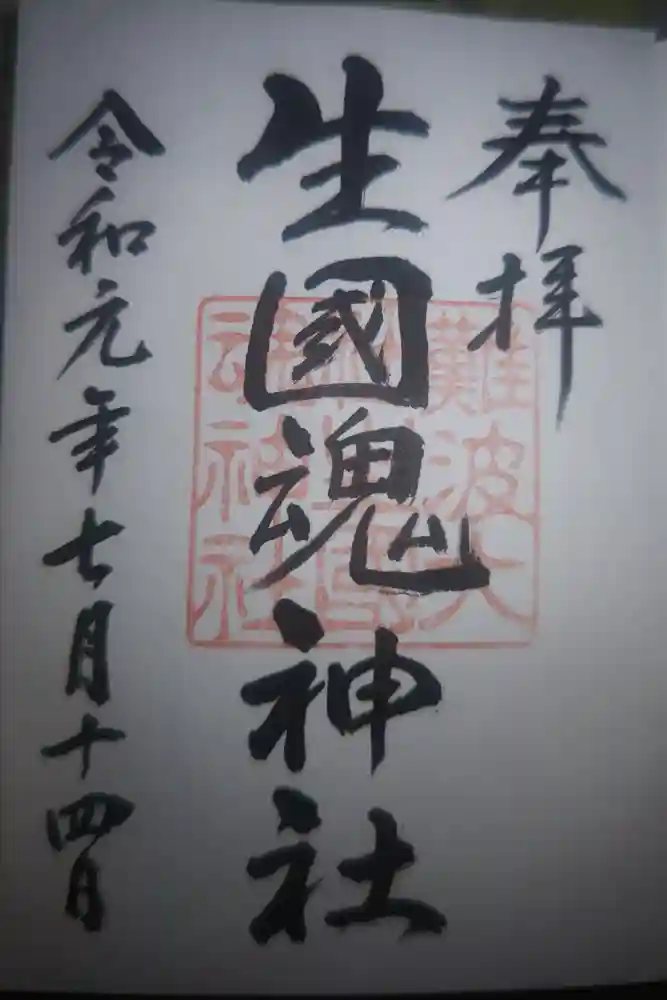 奉拝
生國魂神社
難波大
社生國
魂神社
令和元年七月十四日